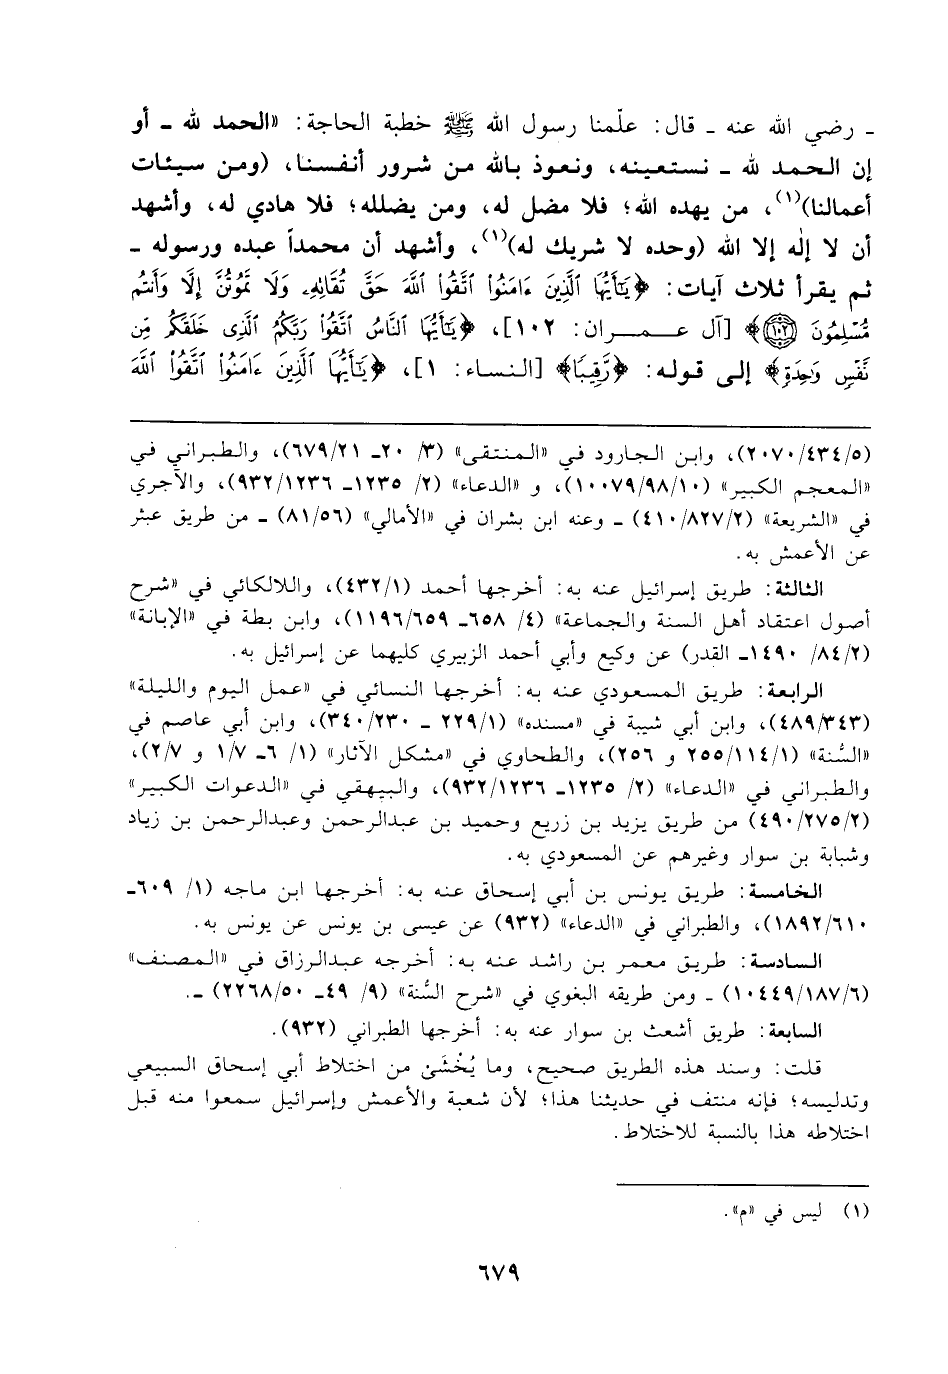 ـ رضي الله عنه ـ قال: علّمنا رسول الله ﷺ خطبة الحاجة: «الحمد لله ـ أو
إن الحمد لله ـ نستعينه، ونعوذ بالله من شرور أنفسنا، (ومن سيئات
أعمالنا)(١)، من يهده الله؛ فلا مضل له، ومن يضلله؛ فلا هادي له، وأشهد
أن لا إلٰه إلا الله (وحده لا شريك له)(١)، وأشهد أن محمداً عبده ورسوله ـ
ثم يقرأ ثلاث آيات: ﴿يَٰٓأَيُّهَا ٱلَّذِينَ ءَامَنُوا۟ ٱتَّقُوا۟ ٱللَّهَ حَقَّ تُقَاتِهِۦ وَلَا تَمُوتُنَّ إِلَّا وَأَنتُم
مُّسْلِمُونَ ١٠٢﴾ [آل عمران: ١٠٢]، ﴿يَٰٓأَيُّهَا ٱلنَّاسُ ٱتَّقُوا۟ رَبَّكُمُ ٱلَّذِى خَلَقَكُم مِّن
نَّفْسٍ وَٰحِدَةٍ﴾ إلى قوله: ﴿رَّقِيبًا﴾ [النساء: ١]، ﴿يَٰٓأَيُّهَا ٱلَّذِينَ ءَامَنُوا۟ ٱتَّقُوا۟ ٱللَّهَ
(٥/٤٣٤/٢٠٧٠)، وابن الجارود في «المنتقى» (٣/ ٢٠ـ ٢١/٦٧٩)، والطبراني في
«المعجم الكبير» (١٠/٩٨/١٠٠٧٩)، و «الدعاء» (٢/ ١٢٣٥ـ ١٢٣٦/٩٣٢)، والآجري
في «الشريعة» (٢/٨٢٧/٤١٠) ـ وعنه ابن بشران في «الأمالي» (٥٦/٨١) ـ من طريق عبثر
عن الأعمش به.
الثالثة: طريق إسرائيل عنه به: أخرجها أحمد (١/٤٣٢)، واللالكائي في «شرح
أصول اعتقاد أهل السنة والجماعة» (٤/ ٦٥٨ـ ٦٥٩/١١٩٦)، وابن بطة في «الإبانة»
(٢/٨٤/ ١٤٩٠ـ القدر) عن وكيع وأبي أحمد الزبيري كليهما عن إسرائيل به.
الرابعة: طريق المسعودي عنه به: أخرجها النسائي في «عمل اليوم والليلة»
(٣٤٣/٤٨٩)، وابن أبي شيبة في «مسنده» (١/٢٢٩ ـ ٢٣٠/٣٤٠)، وابن أبي عاصم في
«السُّنة» (١/١١٤/٢٥٥ و ٢٥٦)، والطحاوي في «مشكل الآثار» (١/ ٦ـ ١/٧ و ٢/٧)،
والطبراني في «الدعاء» (٢/ ١٢٣٥ـ ١٢٣٦/٩٣٢)، والبيهقي في «الدعوات الكبير»
(٢/٢٧٥/٤٩٠) من طريق يزيد بن زريع وحميد بن عبدالرحمن وعبدالرحمن بن زياد
وشبابة بن سوار وغيرهم عن المسعودي به.
الخامسة: طريق يونس بن أبي إسحاق عنه به: أخرجها ابن ماجه (١/ ٦٠٩ـ
٦١٠/١٨٩٢)، والطبراني في «الدعاء» (٩٣٢) عن عيسى بن يونس عن يونس به.
السادسة: طريق معمر بن راشد عنه به: أخرجه عبدالرزاق في «المصنف»
(٦/١٨٧/١٠٤٤٩) ـ ومن طريقه البغوي في «شرح السُّنة» (٩/ ٤٩ـ ٥٠/٢٢٦٨) ـ.
السابعة: طريق أشعث بن سوار عنه به: أخرجها الطبراني (٩٣٢).
قلت: وسند هذه الطريق صحيح، وما يُخْشَىٰ من اختلاط أبي إسحاق السبيعي
وتدليسه؛ فإنه منتف في حديثنا هذا؛ لأن شعبة والأعمش وإسرائيل سمعوا منه قبل
اختلاطه هذا بالنسبة للاختلاط.
(١) ليس في «م».
٦٧٩